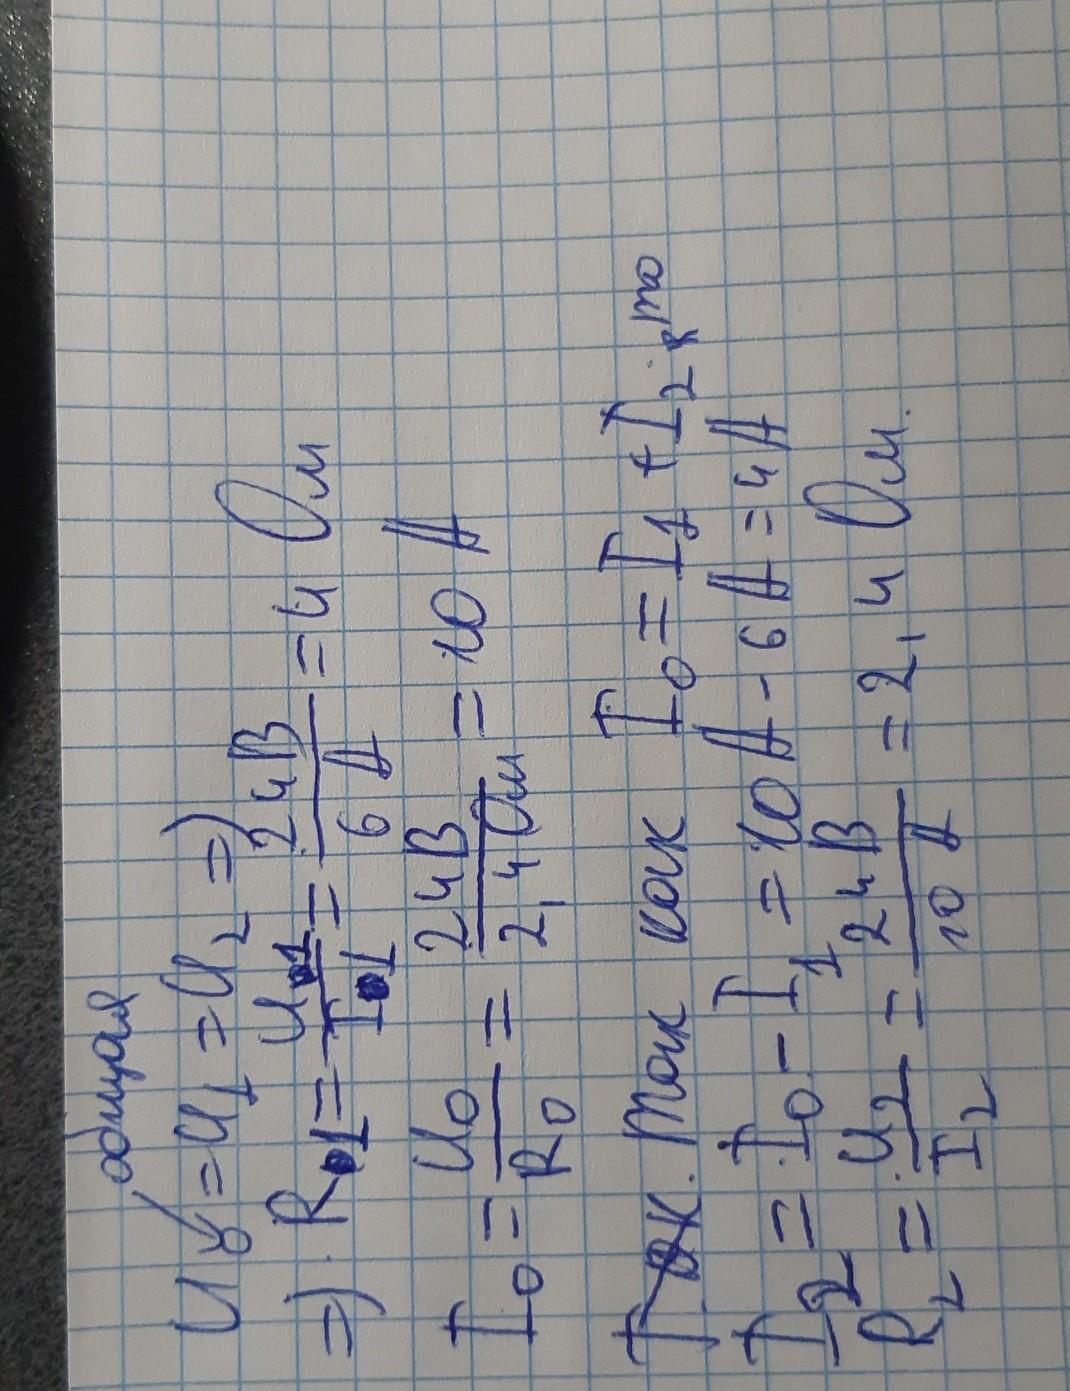 общая
U₀ = U₁ = U₂ =>
=> R₁ = U₁/I₁ = 24В/6А = 4 Ом
I₀ = U₀/R₀ = 24В/2,4Ом = 10 А
Так как I₀ = I₁ + I₂, то
I₂ = I₀ - I₁ = 10А - 6А = 4А
R₂ = U₂/I₂ = 24В/10А = 2,4 Ом.